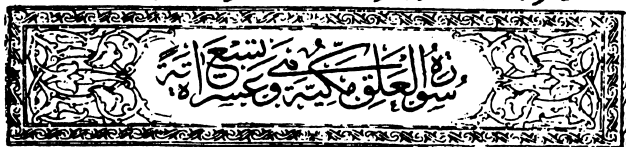 سورة العلق مكية وهى تسع وعشرآية